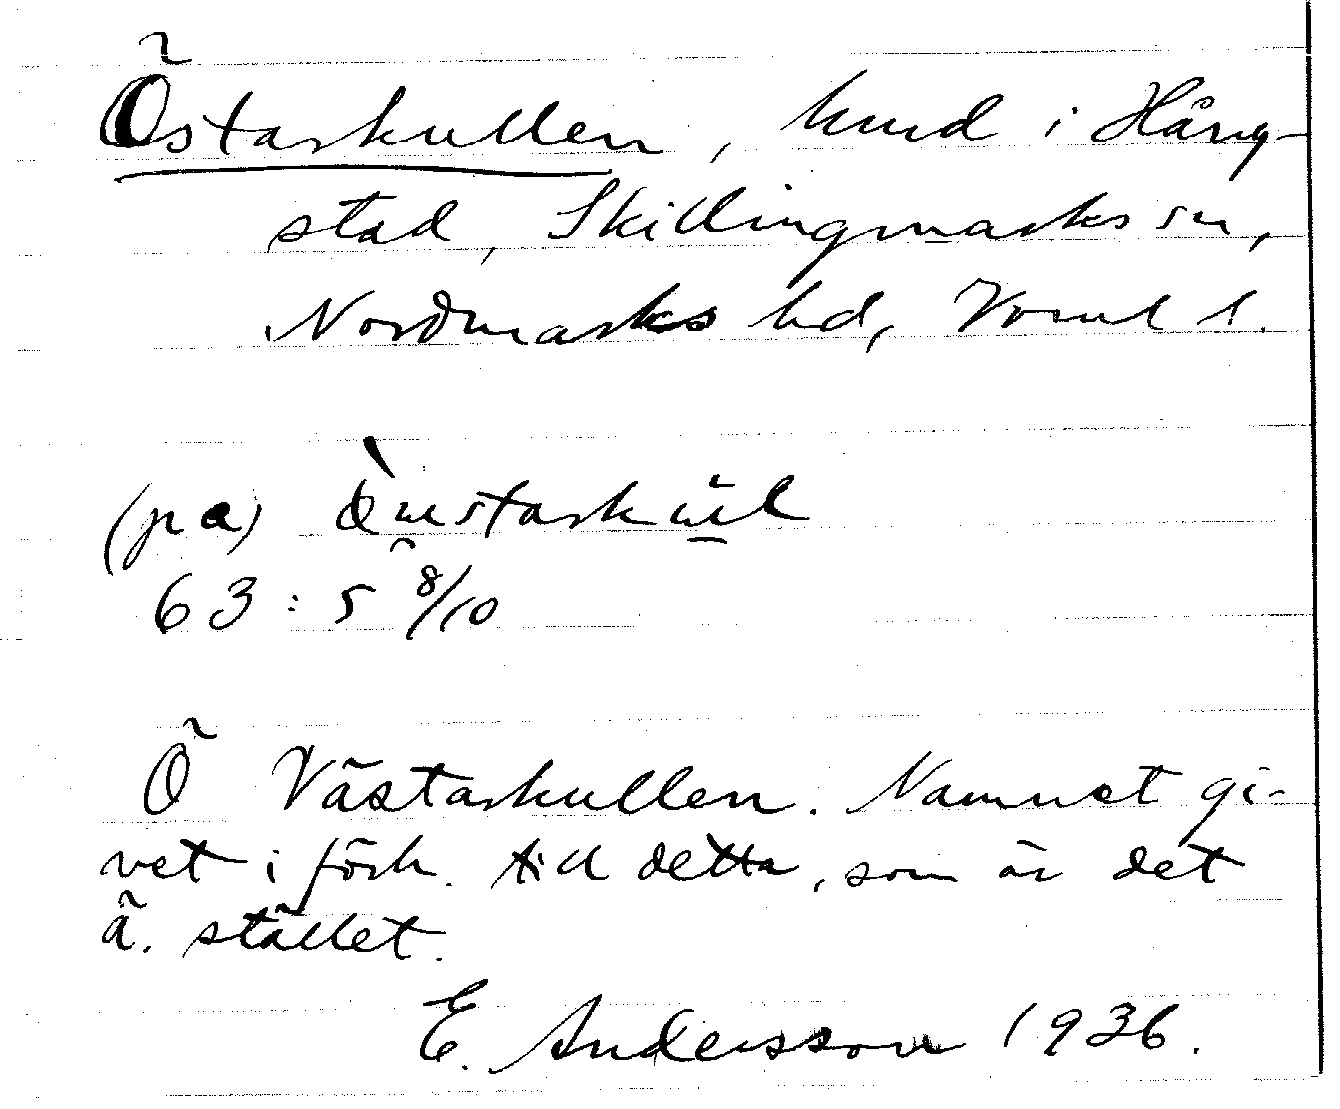 Östarkullen, hmd i Hång-
stad, Skillingmarks sn,
Nordmarks hd, Vrml l.
(på)
63:5 8/10
Ö Västarkullen. Namnet gi-
vet i förh. till detta, som är det
ä. stället.
E. Andersson 1936.